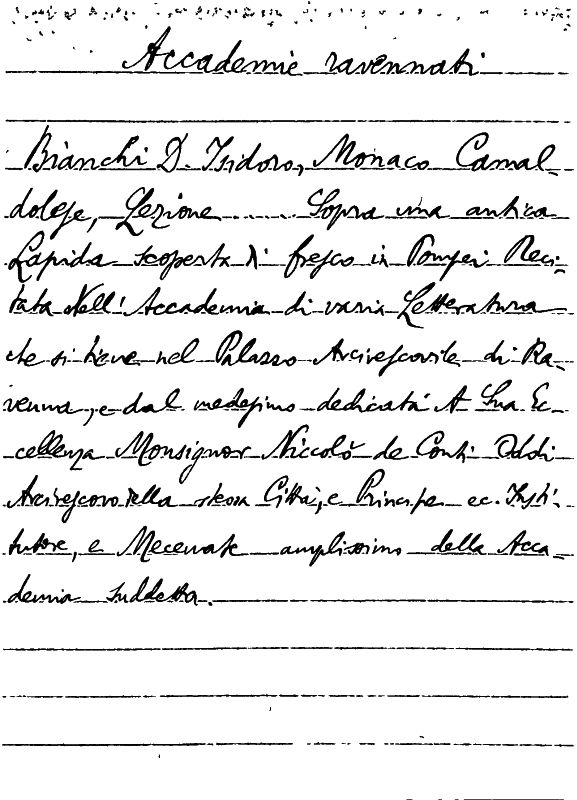 Accademie ravennati
Bianchi D. Isidoro, Monaco Camal-
dolese, Lezione ...... Sopra una antica
Lapida scoperta di fresco in Pompei Reci-
tata Nell' Accademia di varia Letteratura
che si tiene nel Palazzo Arcivescovile di Ra-
venna, e dal medesimo dedicata A Sua Ec-
cellenza Monsignor Niccolò de Conti Oddi
Arcivescovo della stessa Città, e Principe ec. Insti-
tutore, e Mecenate amplissimo della Acca-
demia suddetta.